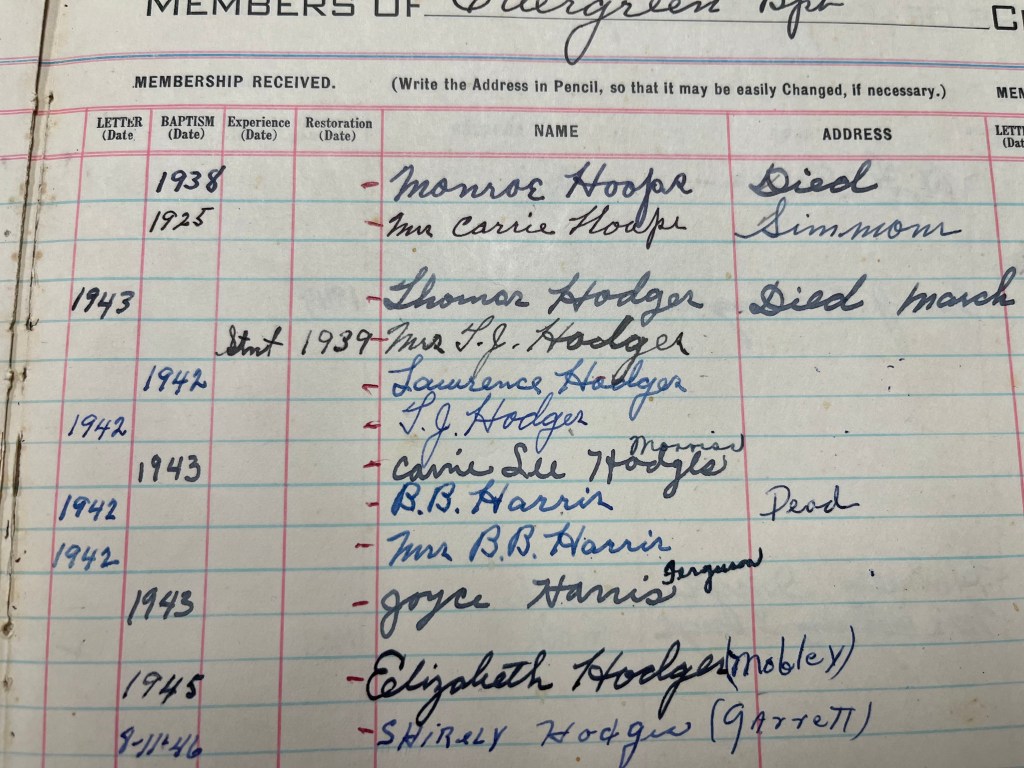 MEMBERS OF Evergreen Bpt
MEMBERSHIP RECEIVED. (Write the Address in Pencil, so that it may be easily Changed, if necessary.)
LETTER (Date BAPTISM (Date) Experience (Date) Restoration (Date) NAME ADDRESS
1938 - Monroe Hoops Died
1925 - Mrs Carrie Hoops Simmons
1943 - Thomas Hodges Died March
Stmt 1939 - Mrs T.J. Hodges
1942 - Lawrence Hodges
1942 - T.J. Hodges
Morris
1943 - Carrie Lee Hodges
1942 - B.B. Harris Dead
1942 - Mrs B.B. Harris
Ferguson
1943 - Joyce Harris
1945 - Elizabeth Hodges (Mobley)
8-11-46 - SHIRELY Hodges (GArreTT)